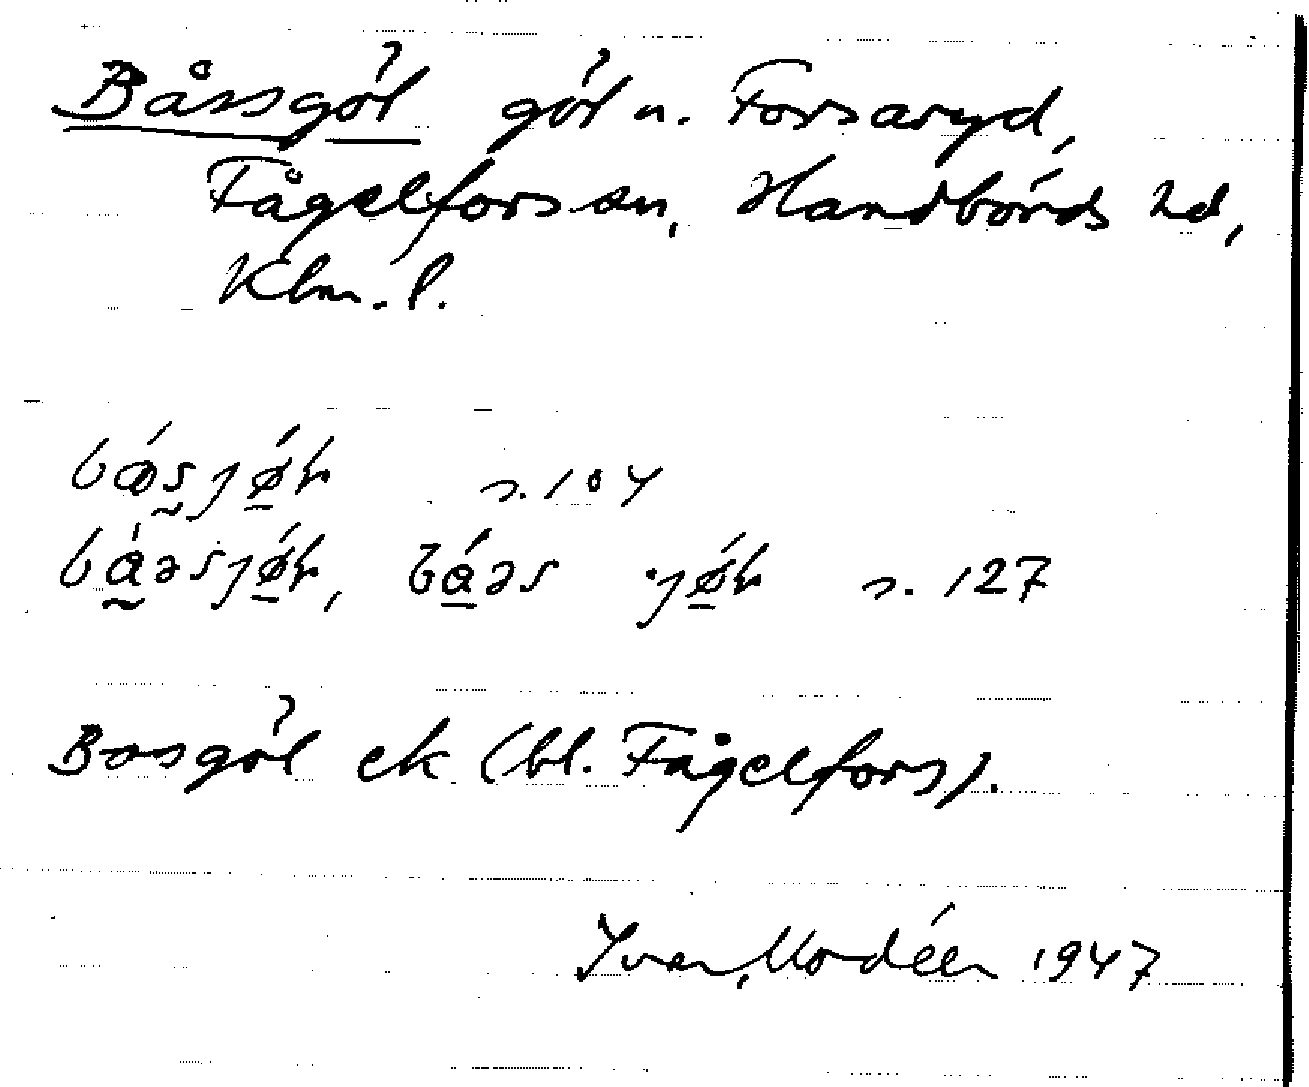 Båssgöl göl n. Forsaryd,
Fågelfors sn, Handbörds hd,
Klm. l.
s. 104
s. 127
Bosgöl ek (bl. Fågelfors).
Ivar Modéer 1947